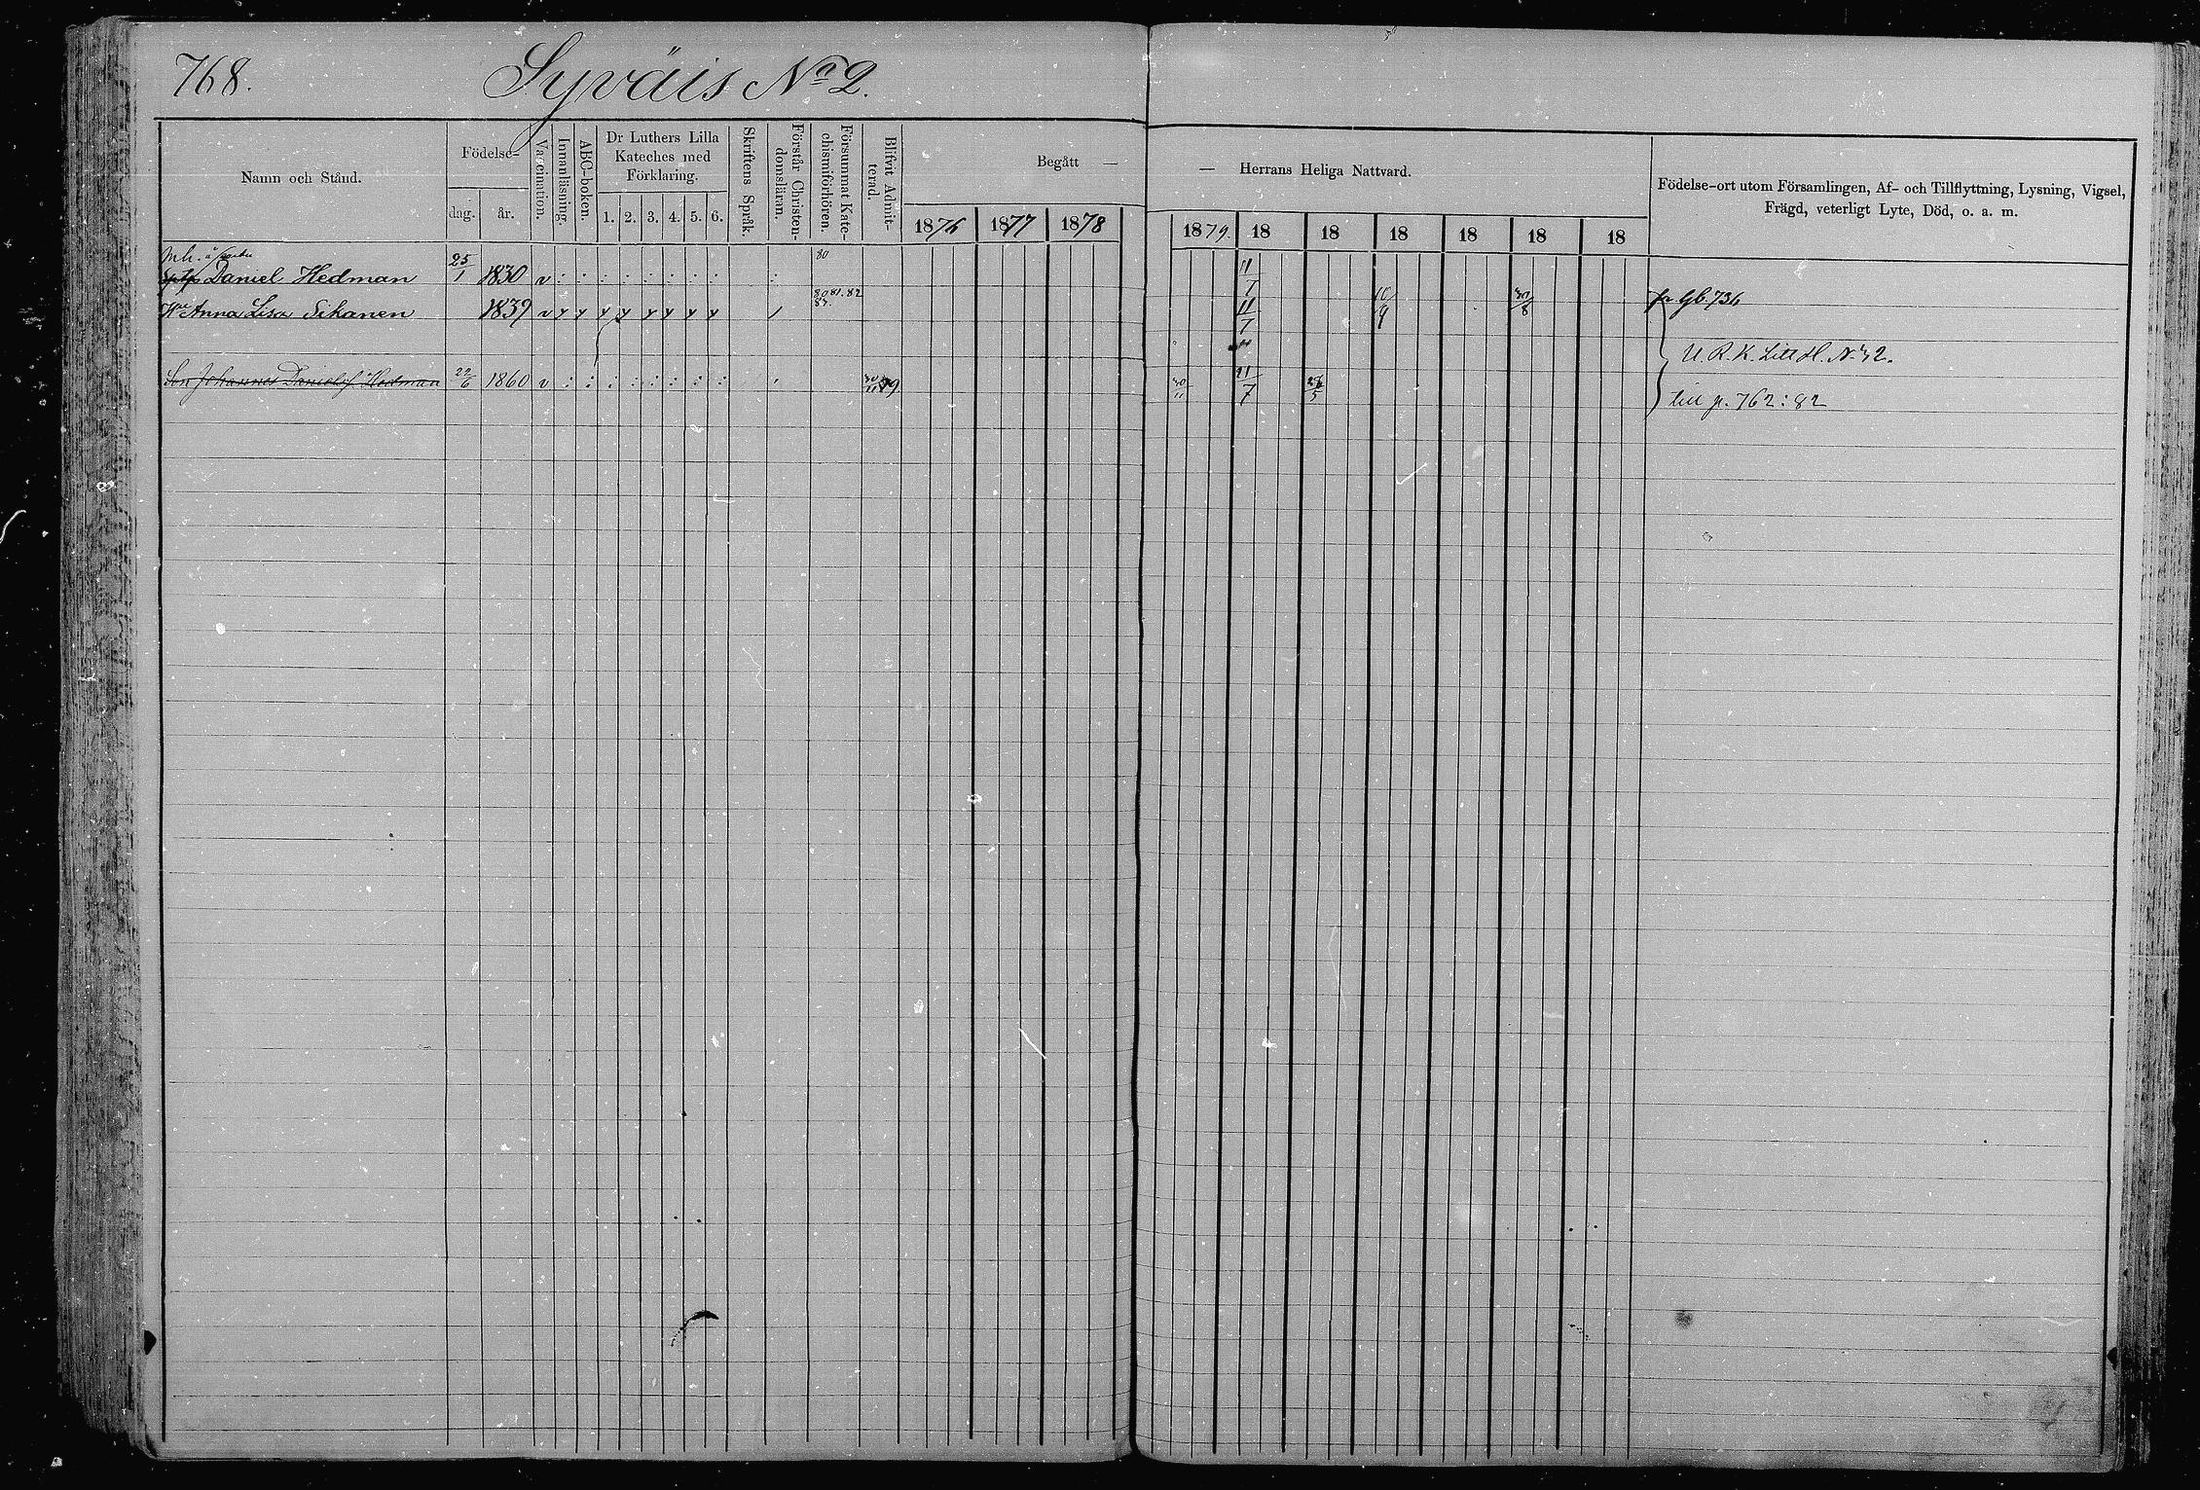 768. Syväis No 2.
Namn och Stånd.
Födelse-
dag. år.
Vaccination.
Innanläsning.
ABC-boken.
Dr Luthers Lilla
Kateches med
Förklaring.
1. 2. 3. 4. 5. 6.
Skriftens Språk.
Förstår Christen-
domsläran.
Försummat Kate-
chismiförhören.
Blifvit Admit-
terad.
Begått —
1876 1877 1878
— Herrans Heliga Nattvard.
1879. 18 18 18 18 18 18
Födelse-ort utom Församlingen, Af- och Tillflyttning, Lysning, Vigsel,
Frägd, veterligt Lyte, Död, o. a. m.
Mh.
Daniel Hedman 25/1 1830 v 80 11/7
Hu Anna Lisa Sikanen 1839 v 80 81. 82 83 11/7 30/8 fr Gb. 736
U. R. K. Litt H. No 32.
Son Johannes Danielsf Hedman 22/6 1860 v 30/11 79. 30/11 11/7 till p. 762: 82